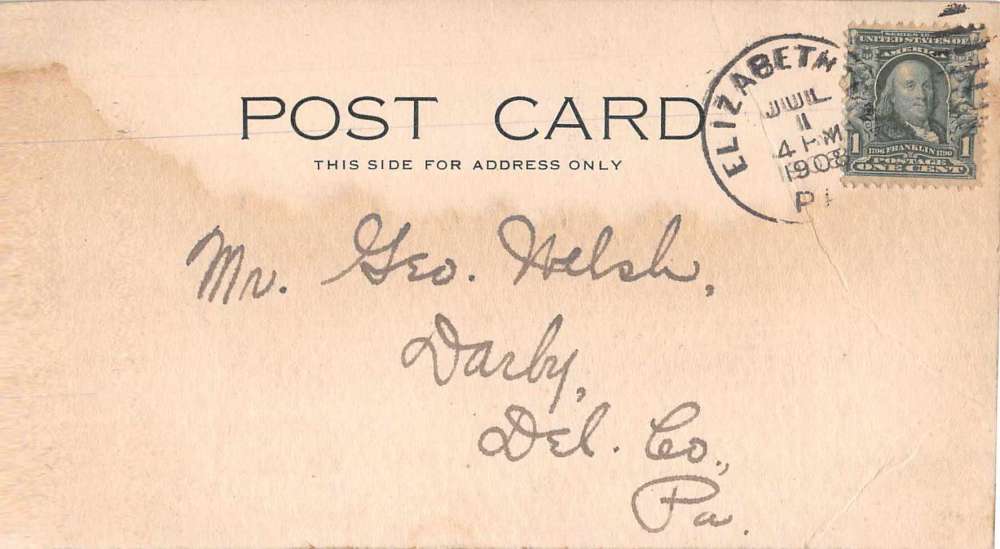 POST CARD
THIS SIDE FOR ADDRESS ONLY
ELIZABETH
JUL
1
4 PM
1908
PA
SERIES 1902
UNITED STATES OF
AMERICA
1 1706 FRANKLIN 1790 1
POSTAGE
ONE CENT
Mr. Geo. Welsh,
Darby,
Del. Co.,
Pa.